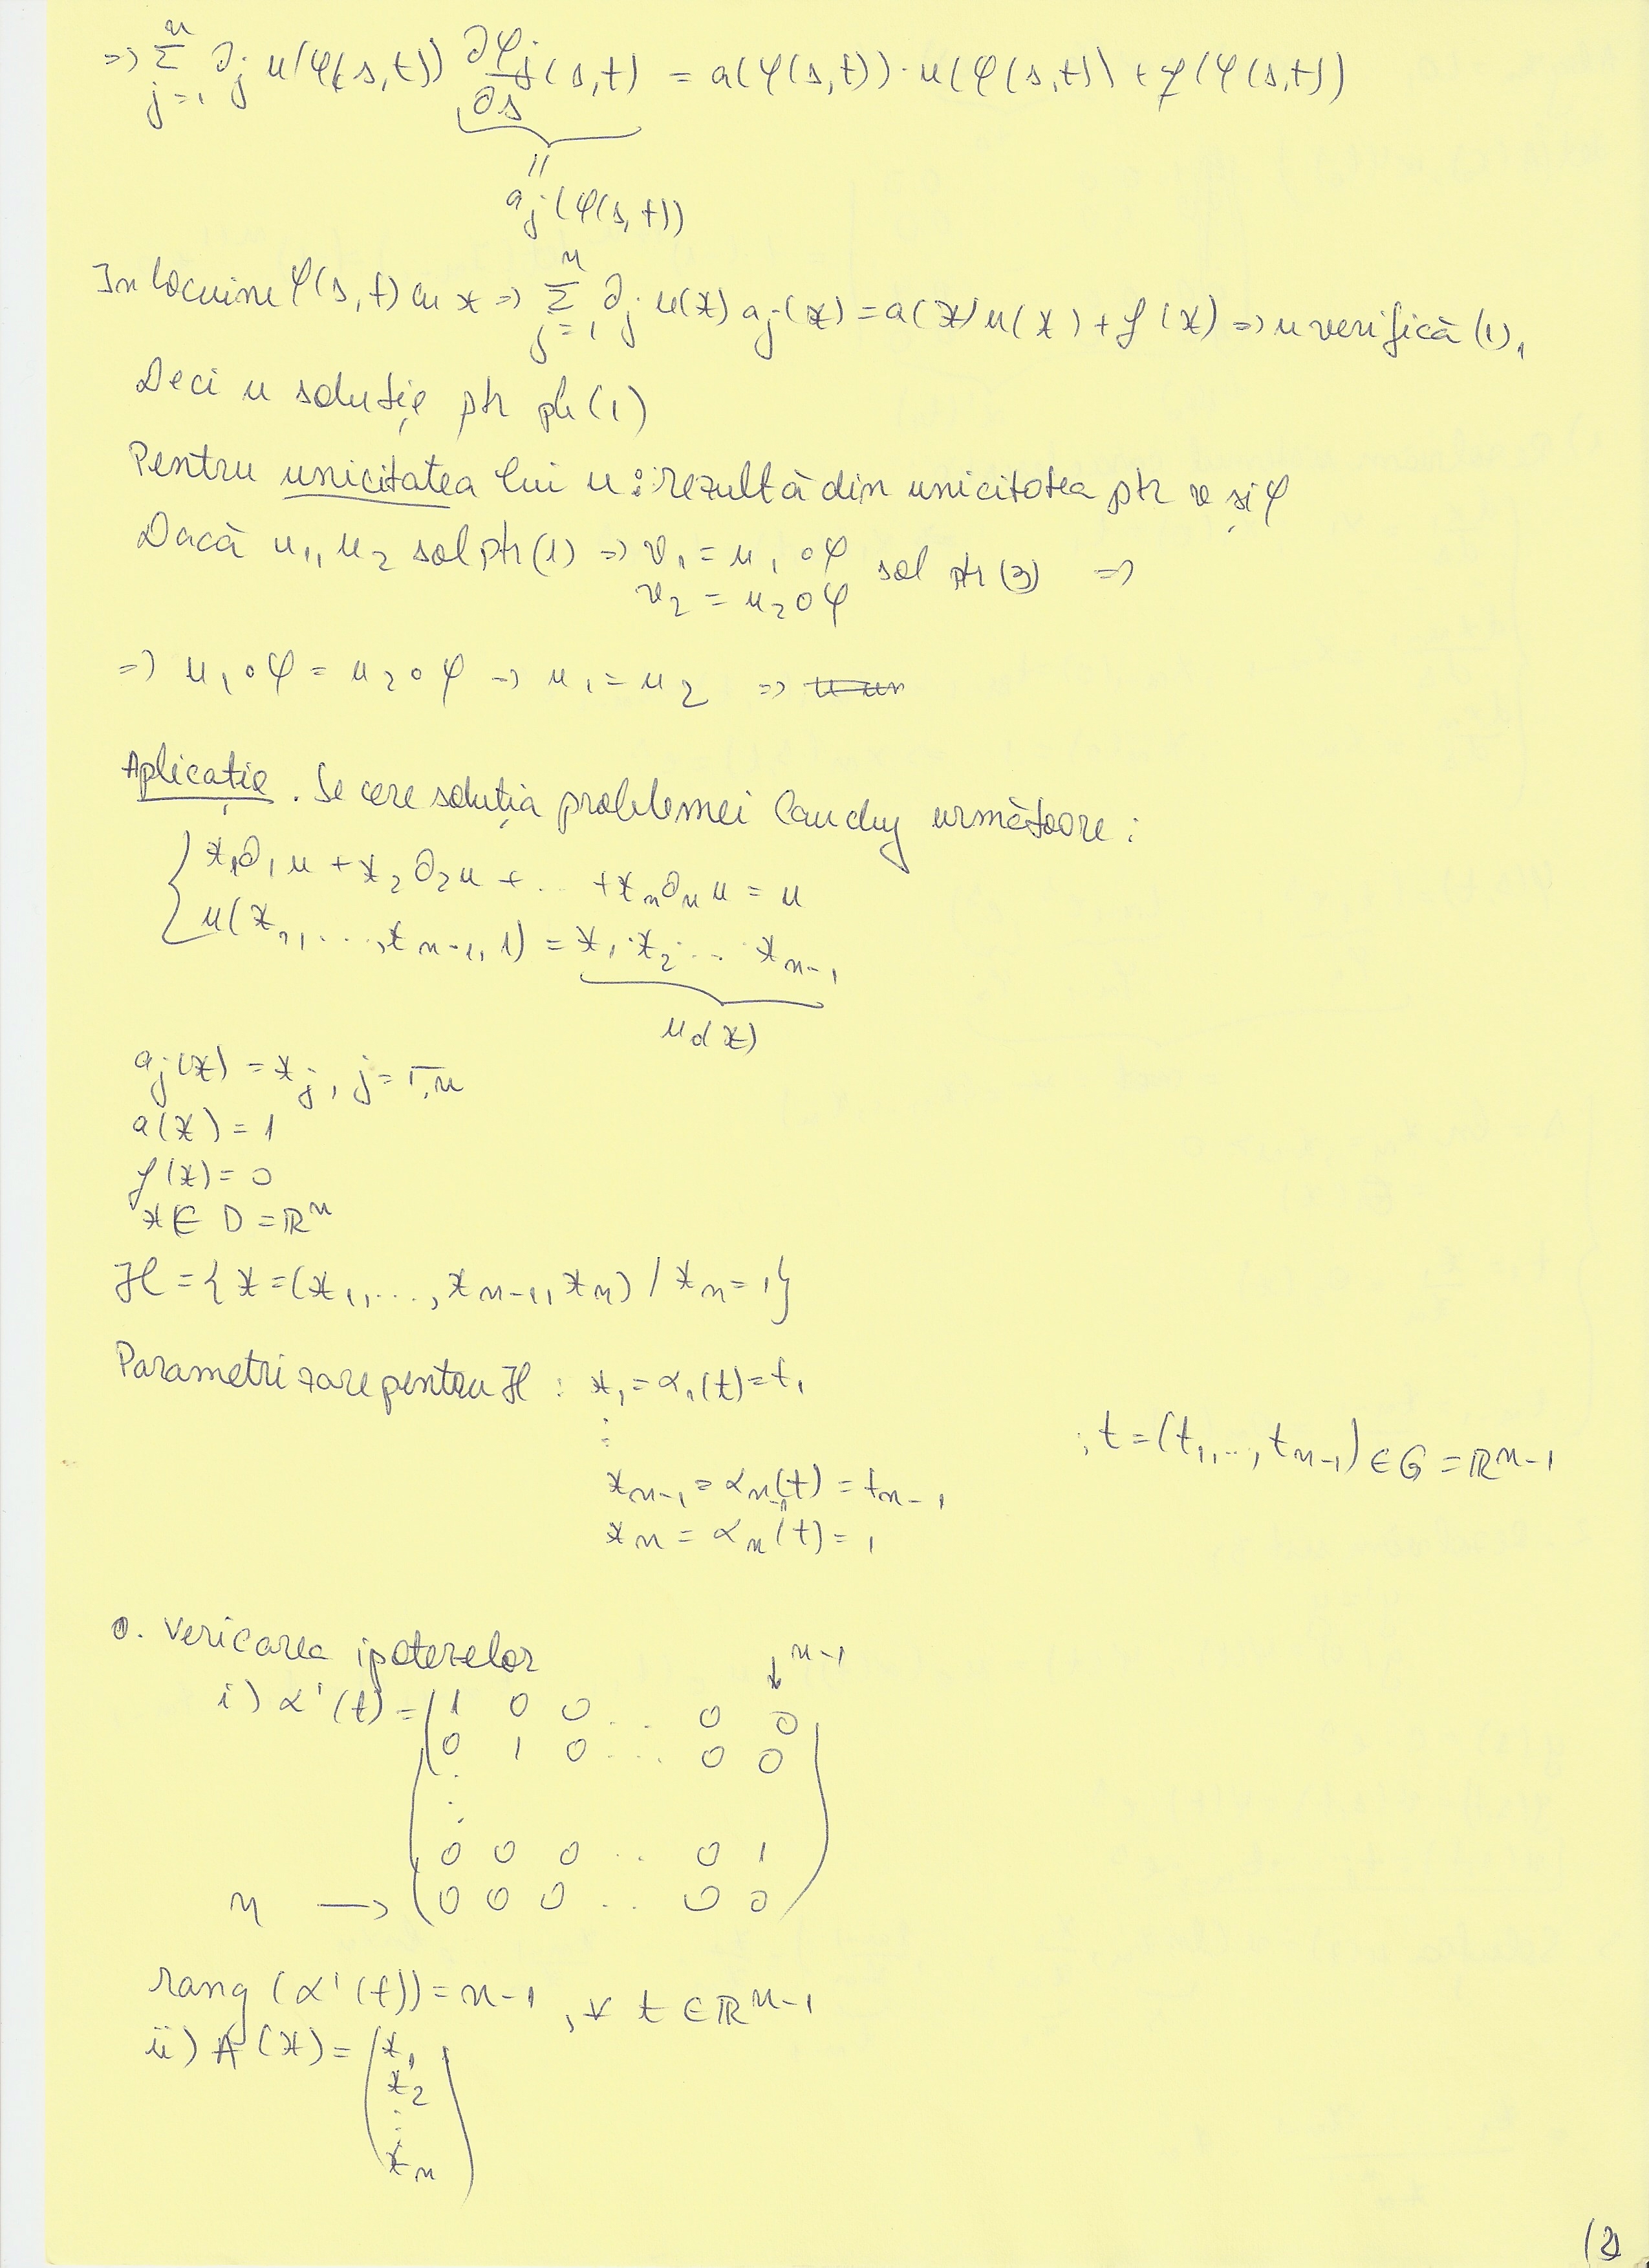 => n Σ j=1 ∂j u(φ(s,t)) ∂φj/∂s (s,t) = a(φ(s,t))·u(φ(s,t)) + f(φ(s,t))
||
aj(φ(s,t))
Inlocuim φ(s,t) cu x => n Σ j=1 ∂j u(x) aj(x) = a(x)u(x) + f(x) => u verifică (1)1
Deci u soluție ptr pb (1)
Pentru unicitatea lui u: rezultă din unicitatea ptr v și φ
Dacă u1, u2 sol ptr (1) => v1 = u1∘φ sol ptr (3) =>
v2 = u2∘φ
=> u1∘φ = u2∘φ => u1 = u2 =>
Aplicație. Se cere soluția problemei Cauchy următoare:
{ x1∂1u + x2∂2u + ... + xn∂nu = u
u(x1, ..., xn-1, 1) = x1·x2· ... xn-1
u0(x)
aj(x) = xj, j = 1,n
a(x) = 1
f(x) = 0
x ∈ D = ℝ^n
H = {x = (x1, ..., xn-1, xn) / xn = 1}
Parametrizare pentru H : x1 = α1(t) = t1
⋮
; t = (t1, ..., tn-1) ∈ G = ℝ^n-1
xn-1 = αn-1(t) = tn-1
xn = αn(t) = 1
0. Vericarea ipotezelor
↓ n-1
i) α'(t) = ( 1 0 0 ... 0 0
0 1 0 ... 0 0
⋮
0 0 0 .. 0 1
n → 0 0 0 .. 0 0 )
rang (α'(t)) = n-1, ∀ t ∈ ℝ^n-1
ii) A(x) = ( x1
x2
⋮
xn )
(2)